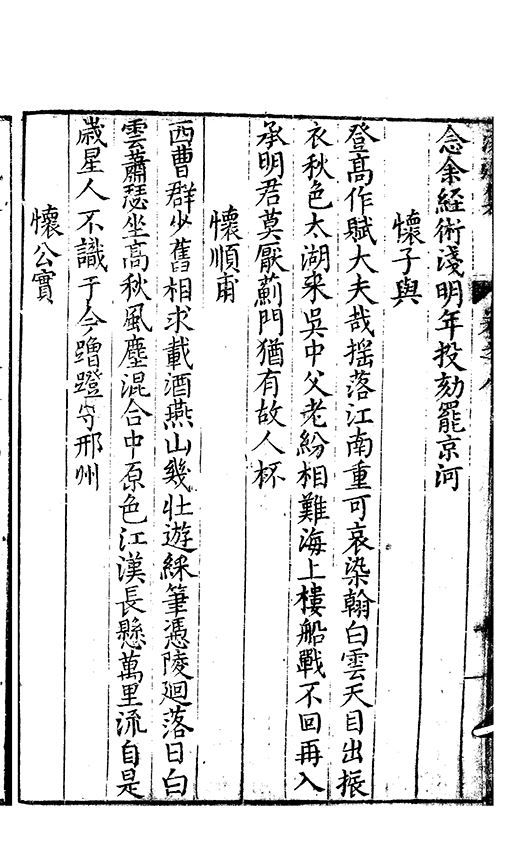 念余經術淺明年投劾罷京河
懷子與
登高作賦大夫哉搖落江南重可哀染翰白雲天目出振
衣秋色太湖來吳中父老紛相難海上樓船戰不回再入
承明君莫厭薊門猶有故人杯
懷順甫
西曹群少舊相求載酒燕山幾壯遊綵筆憑陵廻落日白
雲蕭瑟坐高秋風塵混合中原色江漢長懸萬里流自是
歲星人不識于今蹭蹬守邢州
懷公實